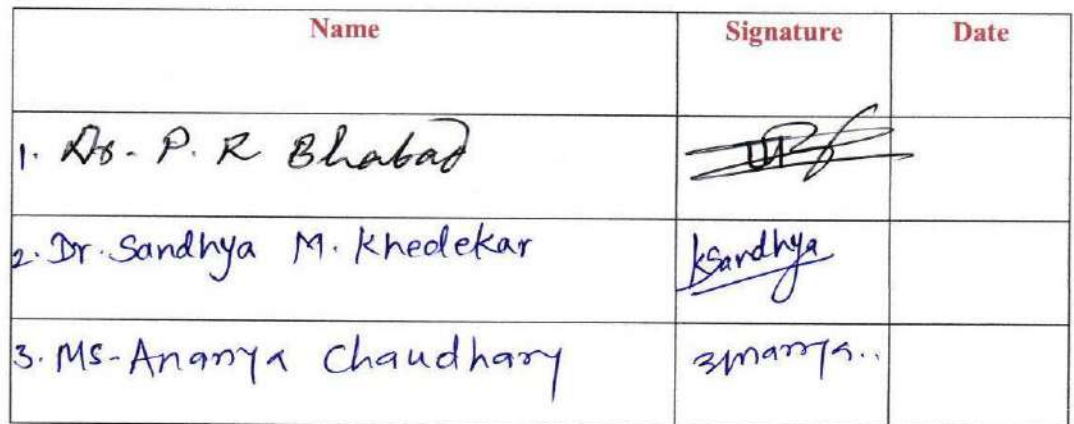 Name Signature Date
1. Dr. P. R Bhabad
2. Dr. Sandhya M. Khedekar KSandhya
3. Ms-Ananya Chaudhary